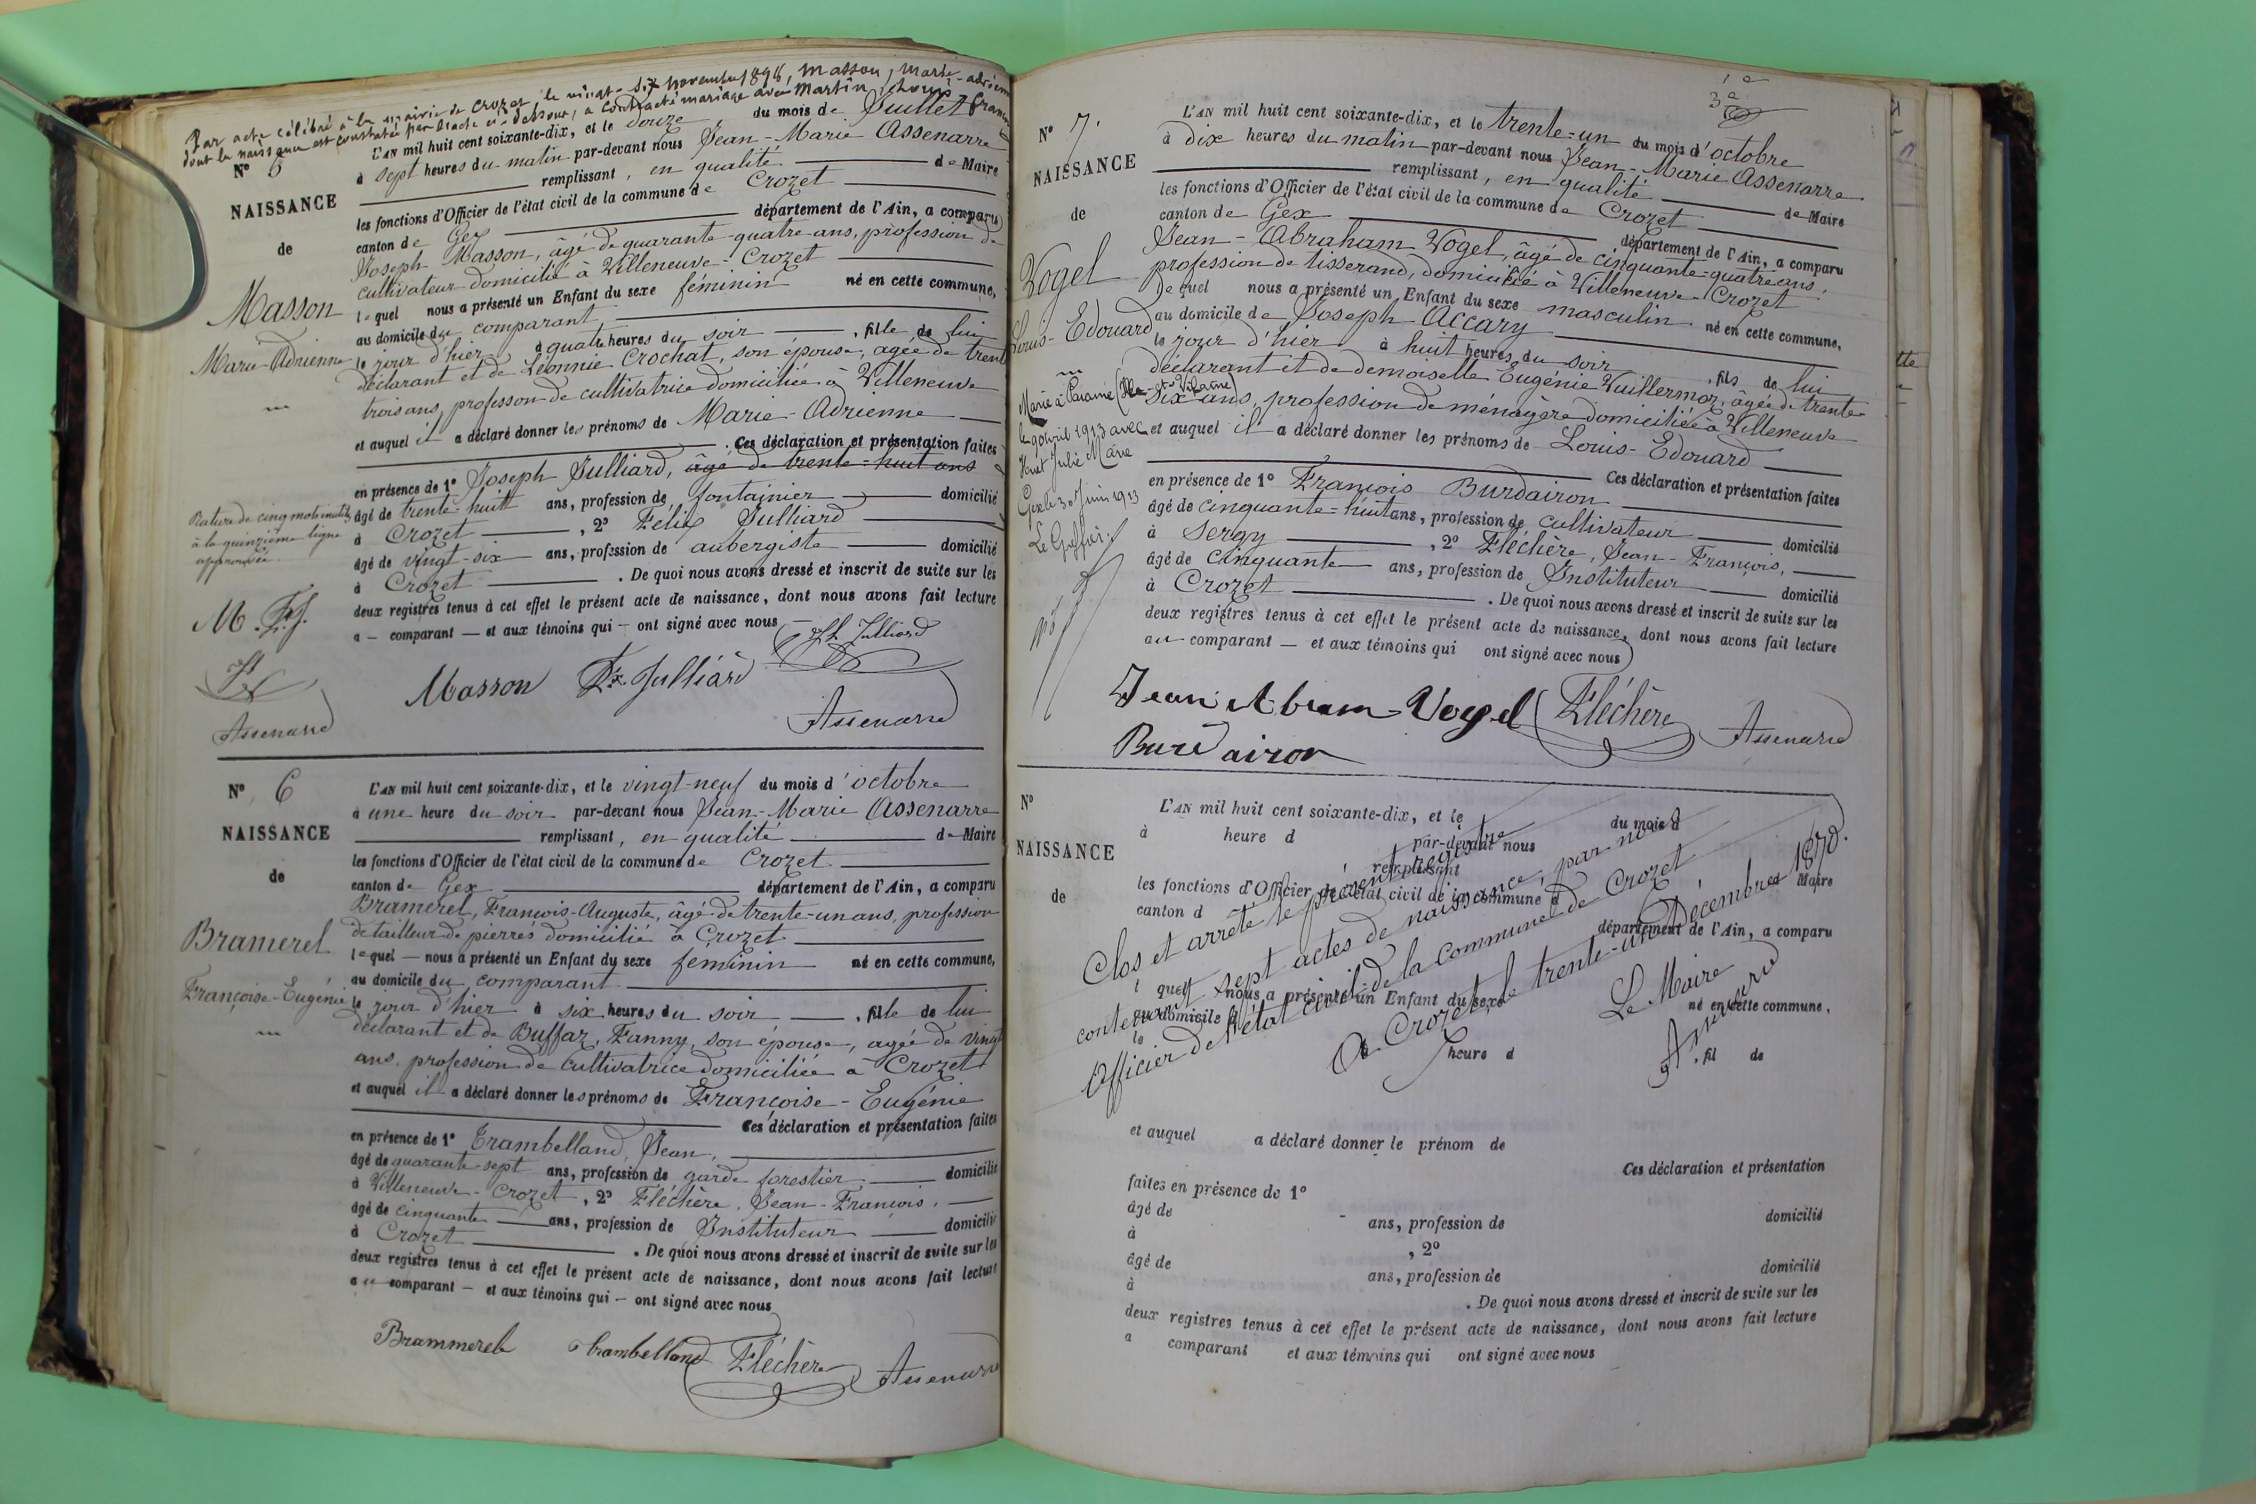 Par acte célébré à la mairie de Crozet le vingt-six novembre 1898, Masson, Marie-Adrienne
dont la naissance est constatée par l'acte ci-dessous, a contracté mariage avec Martin, Louis
N° 5
NAISSANCE
de
Masson
Marie-Adrienne
L'AN mil huit cent soixante-dix, et le douze du mois de Juillet
à sept heures du matin par-devant nous Jean-Marie Assenarre
remplissant, en qualité de Maire
les fonctions d'Officier de l'état civil de la commune de Crozet
canton de Gex département de l'Ain, a comparu
Joseph Masson, âgé de quarante-quatre ans, profession de
cultivateur domicilié à Villeneuve-Crozet
lequel nous a présenté un Enfant du sexe féminin né en cette commune,
au domicile du comparant
le jour d'hier à quatre heures du soir, fille de lui
déclarant et de Léonnie Crochat, son épouse, agée de trente
trois ans, professon de cultivatrice domiciliée à Villeneuve
et auquel il a déclaré donner les prénoms de Marie-Adrienne
. Ces déclaration et présentation faites
en présence de 1° Joseph Julliard, âgé de trente-huit ans
âgé de trente-huit ans, profession de fontainier domicilié
à Crozet, 2° Félix Julliard
âgé de vingt-six ans, profession de aubergiste domicilié
à Crozet. De quoi nous avons dressé et inscrit de suite sur les
deux registres tenus à cet effet le présent acte de naissance, dont nous avons fait lecture
a comparant et aux témoins qui ont signé avec nous
Rature de cinq mots inutiles
à la quinzième ligne
approuvée.
M. Fx J.
Assenarre
Masson Fx Julliard Jh Julliard
Assenarre
N° 6
NAISSANCE
de
Bramerel
Françoise-Eugénie
L'AN mil huit cent soixante-dix, et le vingt-neuf du mois d'octobre
à une heure du soir par-devant nous Jean-Marie Assenarre
remplissant, en qualité de Maire
les fonctions d'Officier de l'état civil de la commune de Crozet
canton de Gex département de l'Ain, a comparu
Bramerel, François-Auguste, âgé de trente-un ans, profession
de tailleur de pierres domicilié à Crozet
lequel nous a présenté un Enfant du sexe féminin né en cette commune,
au domicile du comparant
le jour d'hier à six heures du soir, fille de lui
déclarant et de Buffaz, Fanny, son épouse, agée de vingt
ans, profession de cultivatrice domiciliée à Crozet
et auquel il a déclaré donner les prénoms de Françoise-Eugénie
Ces déclaration et présentation faites
en présence de 1° Trambelland, Jean,
âgé de quarante-sept ans, profession de garde forestier domicilié
à Villeneuve-Crozet, 2° Fléchère, Jean-François,
âgé de cinquante ans, profession de Instituteur domicilié
à Crozet. De quoi nous avons dressé et inscrit de suite sur les
deux registres tenus à cet effet le présent acte de naissance, dont nous avons fait lecture
au comparant et aux témoins qui ont signé avec nous
Brammerel Trambelland Fléchère Assenarre
N° 7.
NAISSANCE
de
Vogel
Louis-Edouard
Marié à Paramé (Ille-et-Vilaine)
le 9 avril 1913 avec
Julie Marie
Gex le 30 Juin 1913
Le Greffier
L'AN mil huit cent soixante-dix, et le trente-un du mois d'octobre
à dix heures du matin par-devant nous Jean-Marie Assenarre
remplissant, en qualité de Maire
les fonctions d'Officier de l'état civil de la commune de Crozet
canton de Gex département de l'Ain, a comparu
Jean-Abraham Vogel, âgé de cinquante-quatre ans,
profession de tisserand, domicilié à Villeneuve-Crozet
lequel nous a présenté un Enfant du sexe masculin né en cette commune,
au domicile de Joseph Accary
le jour d'hier à huit heures du soir, fils de lui
déclarant et de demoiselle Eugénie Vuillermoz, âgée de trente
six ans, profession de ménagère domiciliée à Villeneuve
et auquel il a déclaré donner les prénoms de Louis-Edouard
Ces déclaration et présentation faites
en présence de 1° François Burdairon
âgé de cinquante-huit ans, profession de cultivateur domicilié
à Sergy, 2° Fléchère, Jean-François,
âgé de cinquante ans, profession de Instituteur domicilié
à Crozet. De quoi nous avons dressé et inscrit de suite sur les
deux registres tenus à cet effet le présent acte de naissance, dont nous avons fait lecture
au comparant et aux témoins qui ont signé avec nous
Jean Abram Vogel Fléchère Assenarre
Burdairon
N°
NAISSANCE
de
L'AN mil huit cent soixante-dix, et le du mois d
à heure d par-devant nous
remplissant
les fonctions d'Officier de l'état civil de la commune d Maire
canton d département de l'Ain, a comparu
l quel nous a présenté un Enfant du sexe né en cette commune,
au domicile d
le heure d , fil de
Clos et arrêté le présent registre
contenant sept actes de naissance, par nous
Officier de l'état civil de la commune de Crozet
A Crozet, le trente-un Décembre 1870.
Le Maire
Assenarre
et auquel a déclaré donner le prénom de
Ces déclaration et présentation
faites en présence de 1°
âgé de ans, profession de domicilié
à , 2°
âgé de ans, profession de domicilié
à . De quoi nous avons dressé et inscrit de suite sur les
deux registres tenus à cet effet le présent acte de naissance, dont nous avons fait lecture
a comparant et aux témoins qui ont signé avec nous